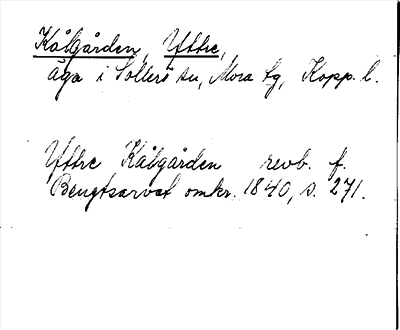 Kålgården, Yttre,
äga i Sollerö sn, Mora tg, Kopp. l.
Yttre Kålgården revb. f.
Bengtsarvet omkr. 1840, s. 271.